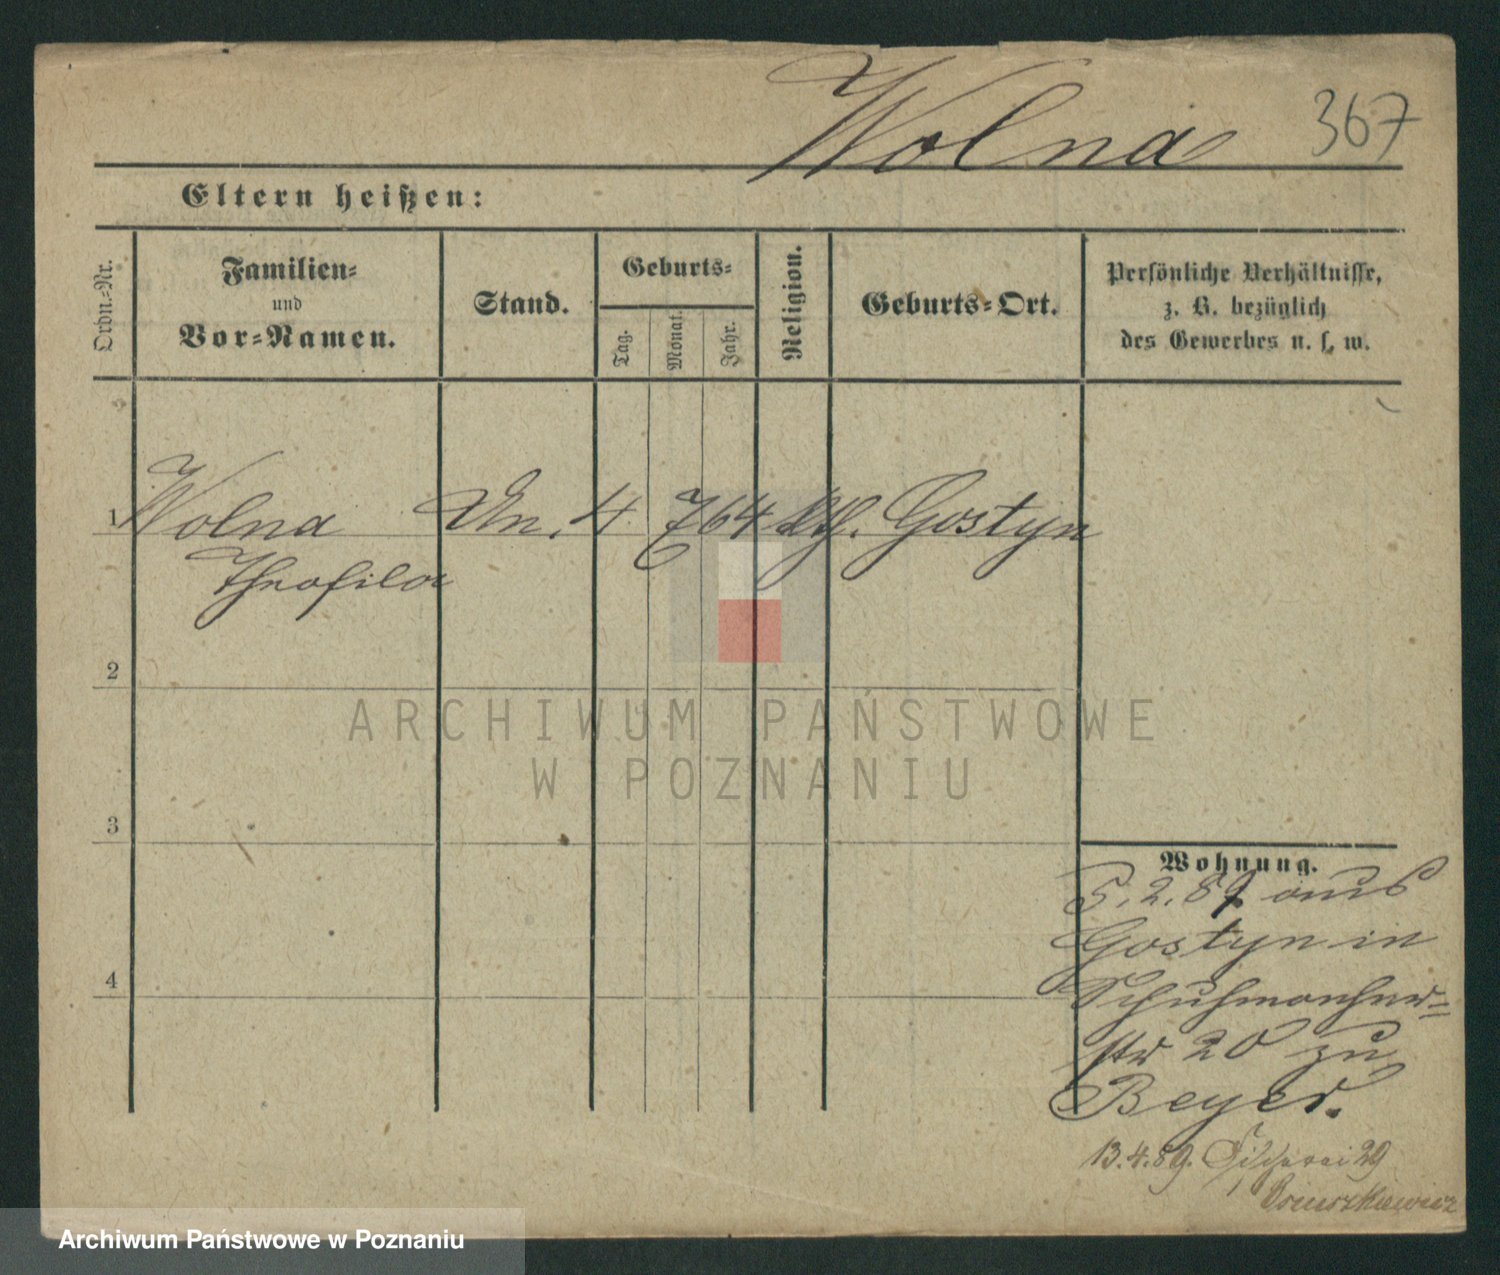 Wolna 367
Eltern heißen:
Ordn.-Nr.
Familien-
und
Vor-Namen.
Stand.
Geburts-
Tag.
Monat.
Jahr.
Religion.
Geburts-Ort.
Persönliche Verhältnisse,
z. B. bezüglich
des Gewerbes u. s. w.
1 Wolna Un. 4 7 64 Gostyn
Theofila
2
3
4
Wohnung.
5. 2. 89 aus
Gostyn in
Schuhmacher=
str 20 zu
Beyer.
13. 4. 89. Fischerei 29
ARCHIWUM PAŃSTWOWE
W POZNANIU
Archiwum Państwowe w Poznaniu